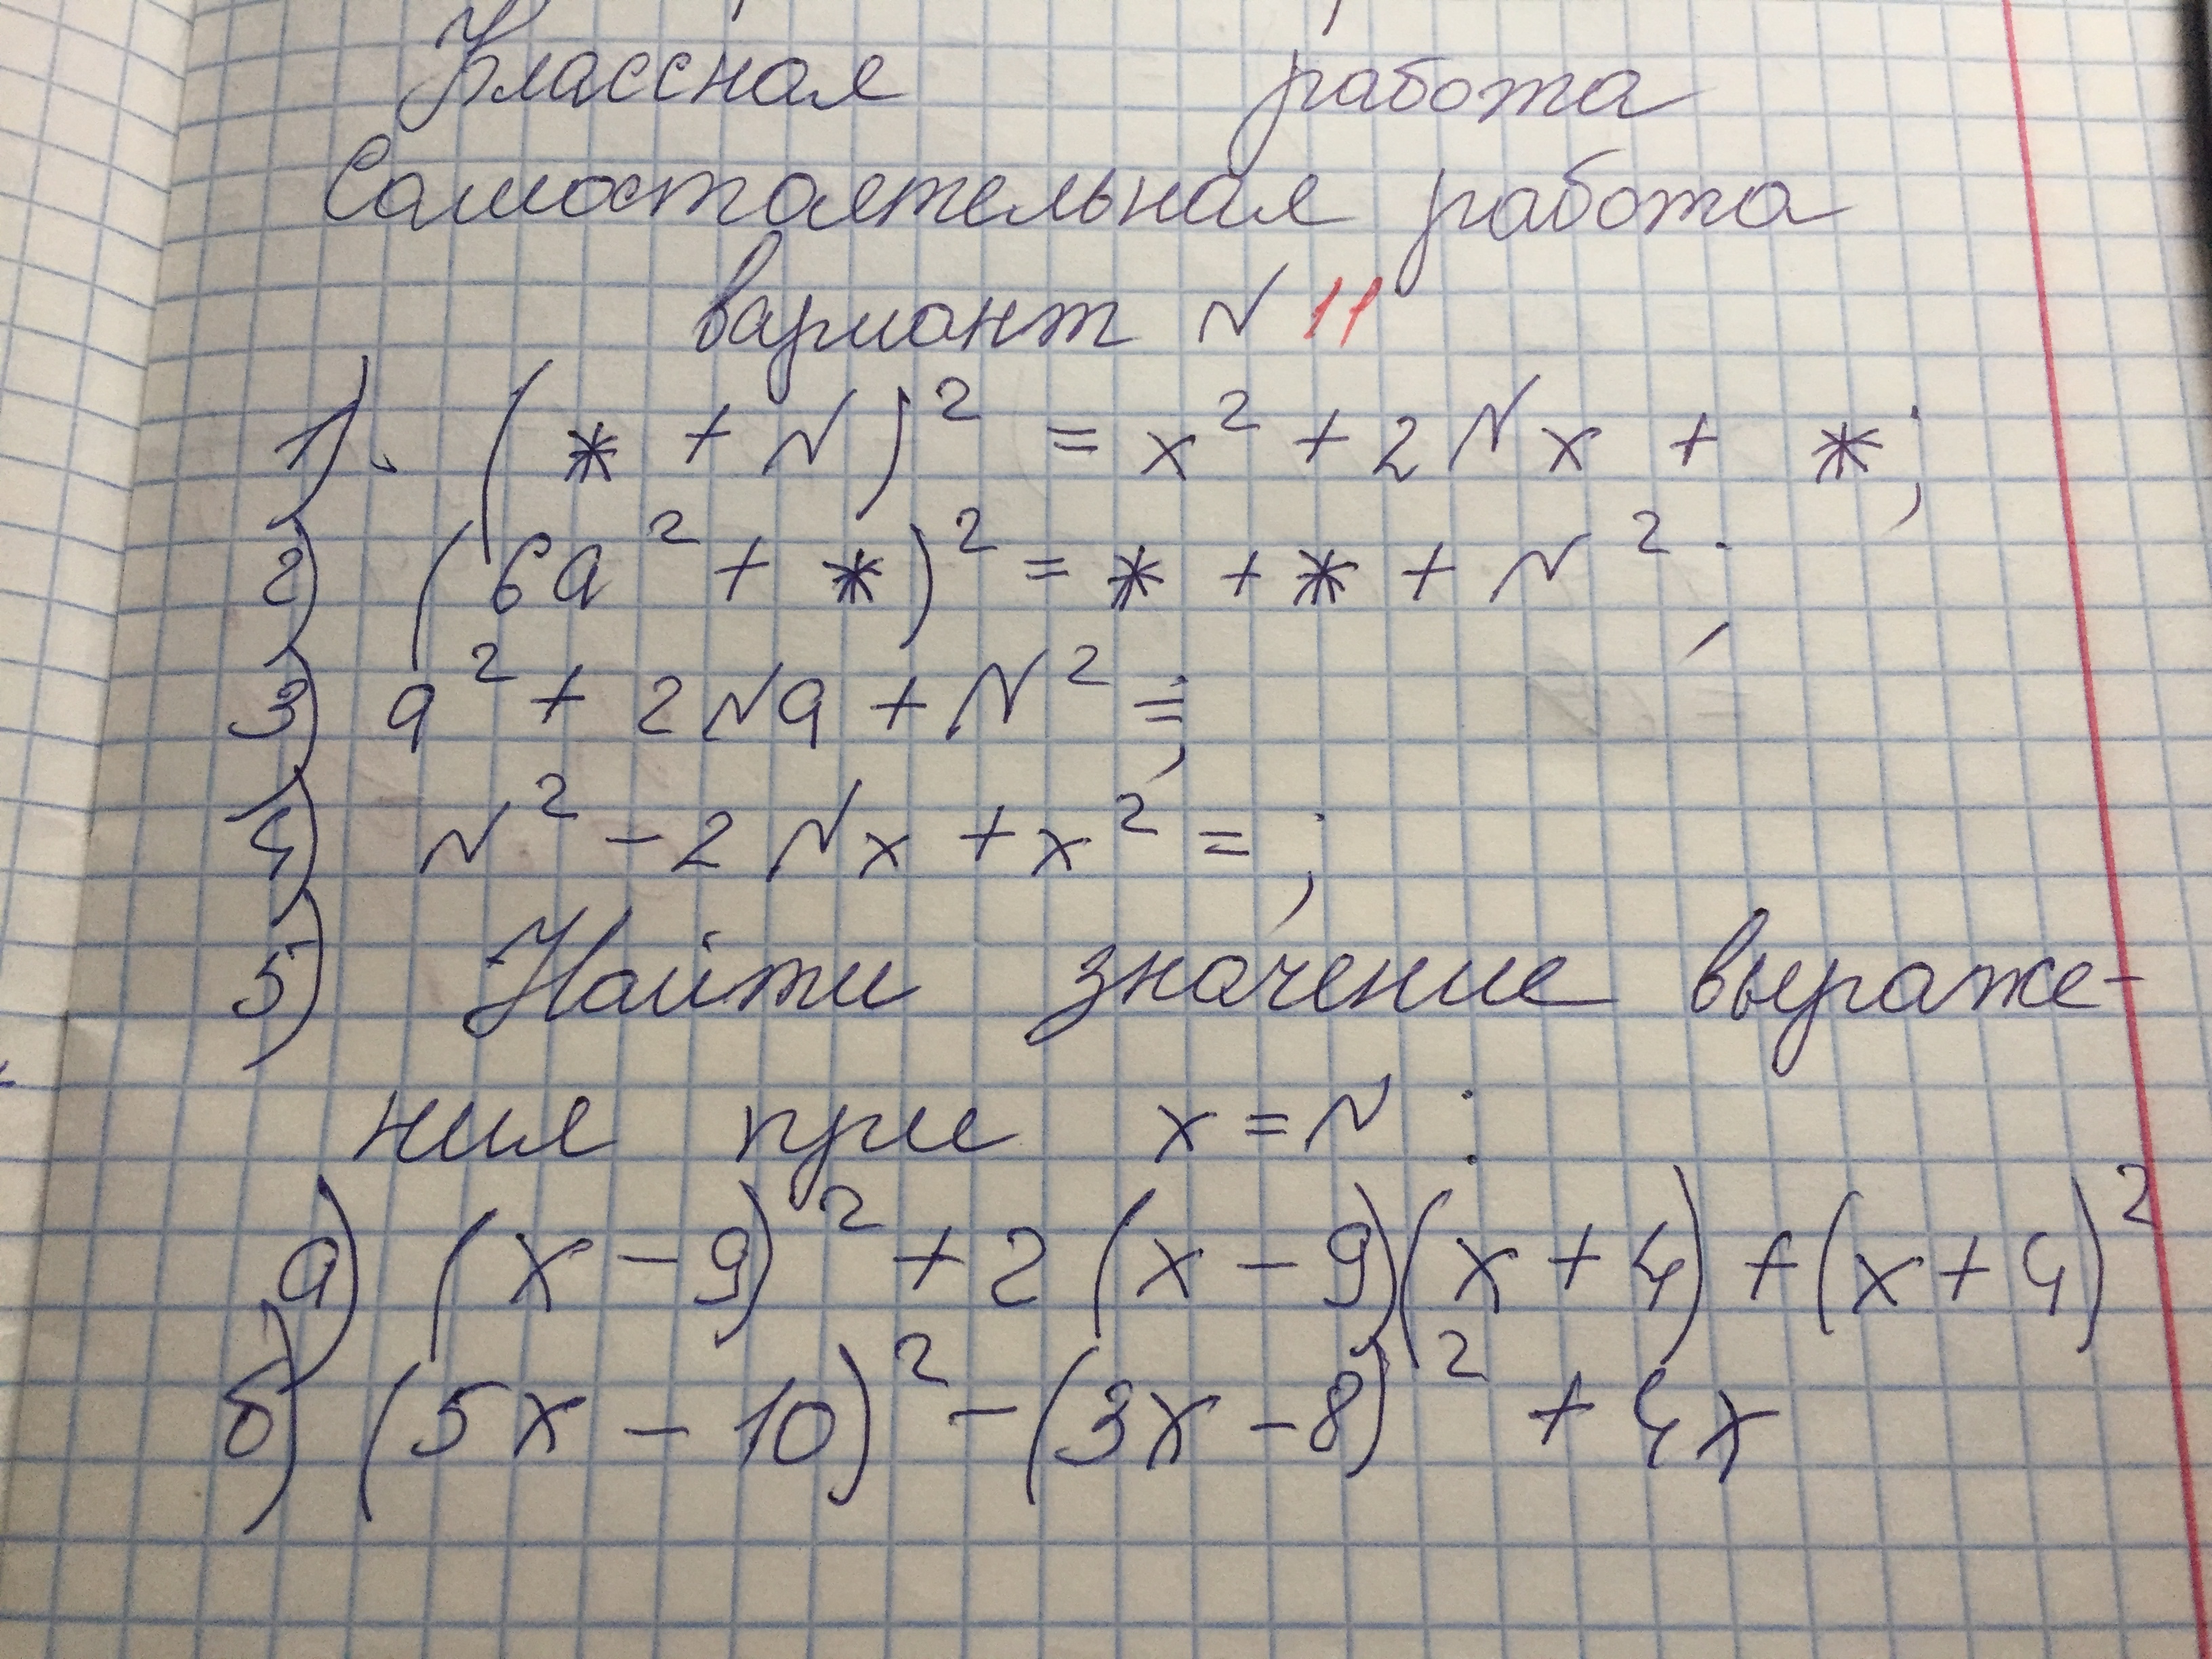 Классная работа
Самостоятельная работа
вариант N 11
1). (* + N)² = x² + 2Nx + *;
2) (6a² + *)² = * + * + N²;
3) a² + 2Na + N² = ;
4) N² - 2Nx + x² = ;
5) Найти значение выраже-
ния при x = N :
а) (x - 9)² + 2(x - 9)(x + 4) + (x + 4)²
б) (5x - 10)² - (3x - 8)² + 4x